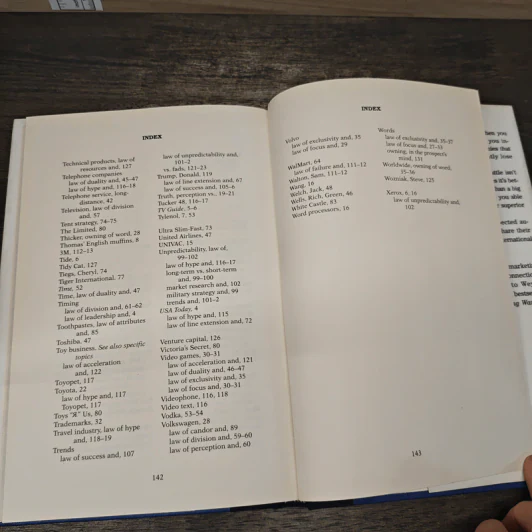 INDEX
Technical products, law of
resources and, 127
Telephone companies
law of duality and, 45-47
law of hype and, 116-18
Telephone service, long-
distance, 42
Television, law of division
and, 57
Tent strategy, 74-75
The Limited, 80
Thicker, owning word of, 28
Thomas' English muffins, 8
3M, 112-13
Tide, 6
Tidy Cat, 127
Tiegs, Cheryl, 74
Tiger International, 77
Time, 52
Time, law of duality and, 47
Timing
law of division and, 61-62
law of leadership and, 4
Toothpastes, law of attributes
and, 85
Toshiba, 47
Toy business. See also specific
topics
law of acceleration
and, 122
Toyopet, 117
Toyota, 22
law of hype and, 117
Toyopet, 117
Toys "Я" Us, 80
Trademarks, 32
Travel industry, law of hype
and, 118-19
Trends
law of success and, 107
law of unpredictability and,
101-2
vs. fads, 121-23
Trump, Donald, 119
law of line extension and, 67
law of success and, 105-6
Truth, perception vs., 19-21
Tucker 48, 116-17
TV Guide, 5-6
Tylenol, 7, 53
Ultra Slim-Fast, 73
United Airlines, 47
UNIVAC, 15
Unpredictability, law of,
99-102
law of hype and, 116-17
long-term vs. short-term
and, 99-100
market research and, 102
military strategy and, 99
trends and, 101-2
USA Today, 4
law of hype and, 115
law of line extension and, 72
Venture capital, 126
Victoria's Secret, 80
Video games, 30-31
law of acceleration and, 121
law of duality and, 46-47
law of exclusivity and, 35
law of focus and, 30-31
Videophone, 116, 118
Video text, 116
Vodka, 53-54
Volkswagen, 28
law of candor and, 89
law of division and, 59-60
law of perception and, 60
142
INDEX
Volvo
law of exclusivity and, 35
law of focus and, 29
WalMart, 64
law of failure and, 111-12
Walton, Sam, 111-12
Wang, 16
Welch, Jack, 48
Wells, Rich, Green, 46
White Castle, 63
Word processors, 16
Words
law of exclusivity and, 35-37
law of focus and, 27-33
owning, in the prospect's
mind, 131
Worldwide, owning word of,
35-36
Wozniak, Steve, 125
Xerox, 6, 16
law of unpredictability and,
102
143